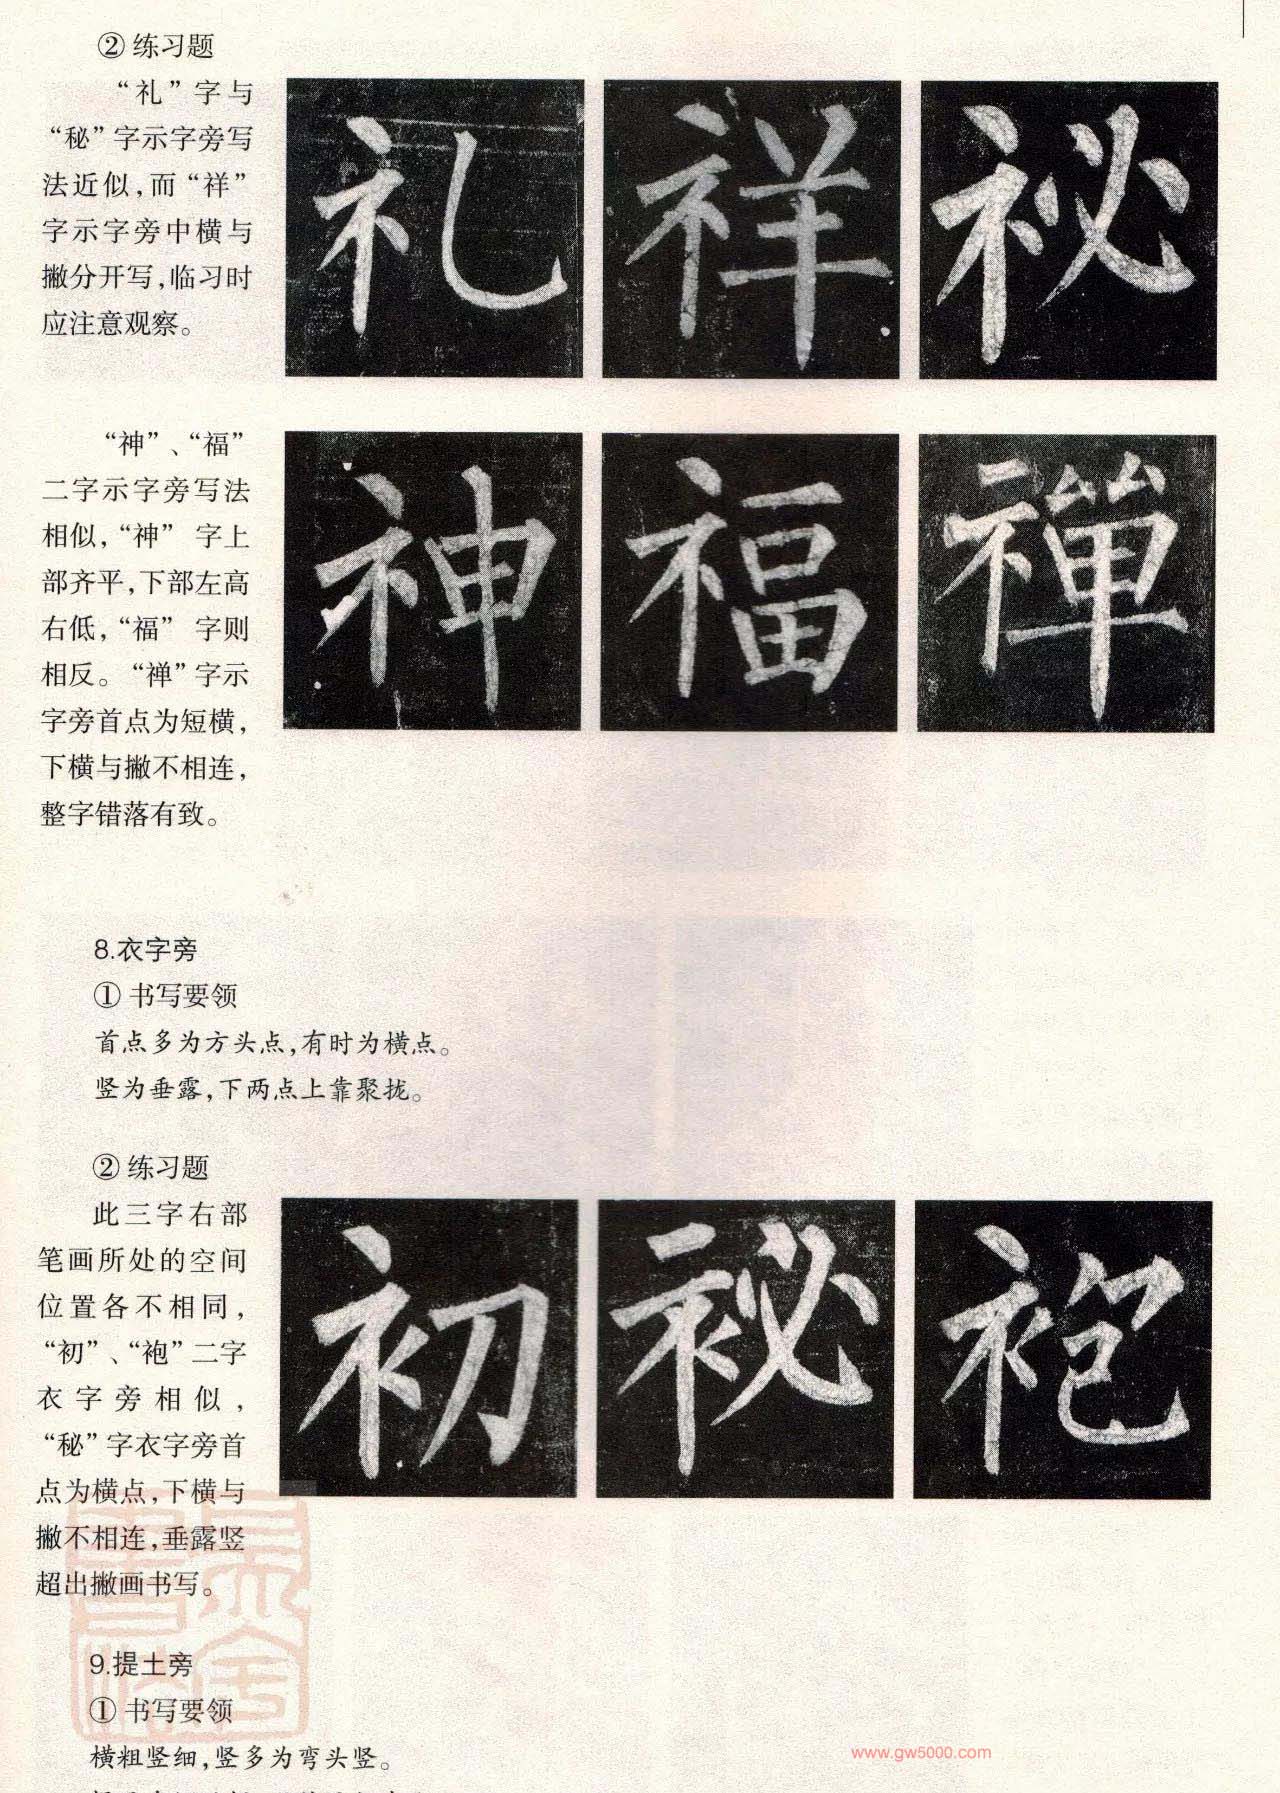 ② 练习题
“礼”字与
“秘”字示字旁写
法近似,而“祥”
字示字旁中横与
撇分开写,临习时
应注意观察。
礼 祥 祕
“神”、“福”
二字示字旁写法
相似,“神” 字上
部齐平,下部左高
右低,“福” 字则
相反。“禅”字示
字旁首点为短横,
下横与撇不相连,
整字错落有致。
神 福 禪
8.衣字旁
① 书写要领
首点多为方头点,有时为横点。
竖为垂露,下两点上靠聚拢。
② 练习题
此三字右部
笔画所处的空间
位置各不相同,
“初”、“袍”二字
衣字旁相似,
“秘”字衣字旁首
点为横点,下横与
撇不相连,垂露竖
超出撇画书写。
初 袐 袍
9.提土旁
① 书写要领
横粗竖细,竖多为弯头竖。
www.gw5000.com